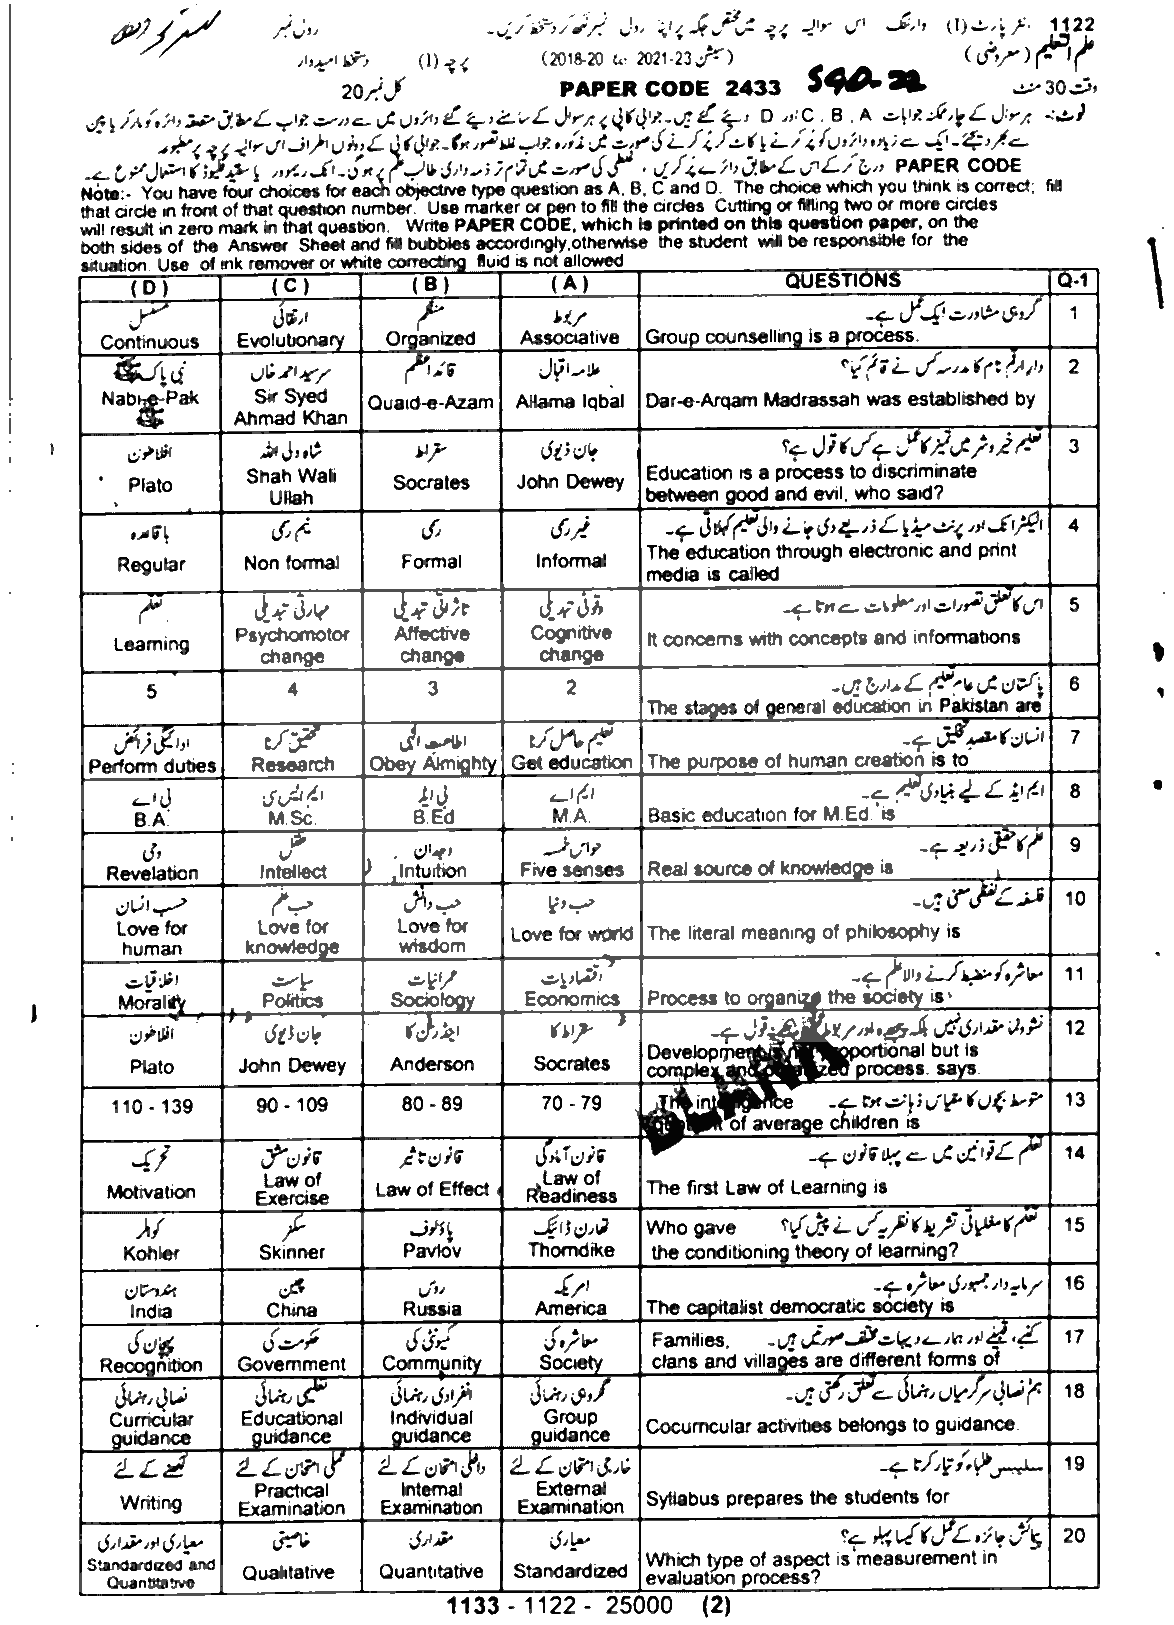 1122 انٹر پارٹ (I) وارننگ اس سوالیہ پرچہ میں مختص جگہ پر اپنا رولی نمبر لکھ کر دستخط کریں۔ رولی نمبر
علم التعلیم (معروضی) (سیشن 20-2018 تا 23-2021) پرچہ (I) دستخط امیدوار
وقت 30 منٹ PAPER CODE 2433 SGD-22 کل نمبر 20
نوٹ:- ہر سوال کے چار ممکنہ جوابات A ، B ، C اور D دیئے گئے ہیں۔ جوابی کاپی پر ہر سوال کے سامنے دیئے گئے دائروں میں سے درست جواب کے مطابق متعلقہ دائرہ کو مارکر یا پین
سے بھر دیجئے۔ ایک سے زیادہ دائروں کو پُر کرنے یا کاٹ کر پُر کرنے کی صورت میں مذکورہ جواب غلط تصور ہوگا۔ جوابی کاپی کے دونوں اطراف اس سوالیہ پرچہ پر مطبوعہ
PAPER CODE درج کر کے اس کے مطابق دائرے پُر کریں ، غلطی کی صورت میں تمام تر ذمہ داری طالب علم پر ہوگی۔ انک ریموور یا سفید فلیوڈ کا استعمال ممنوع ہے۔
Note:- You have four choices for each objective type question as A, B, C and D. The choice which you think is correct; fill
that circle in front of that question number. Use marker or pen to fill the circles Cutting or filling two or more circles
will result in zero mark in that question. Write PAPER CODE, which is printed on this question paper, on the
both sides of the Answer Sheet and fill bubbles accordingly,otherwise the student will be responsible for the
situation. Use of ink remover or white correcting fluid is not allowed
(D) (C) (B) (A) QUESTIONS Q-1
مسلسل ارتقائی منظم مربوط گروہی مشاورت ایک عمل ہے۔ 1
Continuous Evolutionary Organized Associative Group counselling is a process.
نبی پاک ﷺ سرسید احمد خاں قائد اعظم علامہ اقبال دار ارقم نام کا مدرسہ کس نے قائم کیا؟ 2
Nabi-e-Pak ﷺ Sir Syed Ahmad Khan Quaid-e-Azam Allama Iqbal Dar-e-Arqam Madrassah was established by
افلاطون شاہ ولی اللہ سقراط جان ڈیوی تعلیم خیر و شر میں تمیز کا عمل ہے کس کا قول ہے؟ 3
Plato Shah Wali Ullah Socrates John Dewey Education is a process to discriminate
between good and evil, who said?
باقاعدہ نیم رسمی رسمی غیر رسمی الیکٹرانک اور پرنٹ میڈیا کے ذریعے دی جانے والی تعلیم کہلاتی ہے۔ 4
Regular Non formal Formal Informal The education through electronic and print
media is called
تعلم مہارتی تبدیلی تاثراتی تبدیلی وقوفی تبدیلی اس کا تعلق تصورات اور معلومات سے ہوتا ہے۔ 5
Learning Psychomotor change Affective change Cognitive change It concerns with concepts and informations
5 4 3 2 پاکستان میں عام تعلیم کے مدارج ہیں۔ 6
The stages of general education in Pakistan are
ادائیگی فرائض تحقیق کرنا اطاعت الٰہی تعلیم حاصل کرنا انسان کا مقصد تخلیق ہے۔ 7
Perform duties Research Obey Almighty Get education The purpose of human creation is to
بی اے ایم ایس سی بی ایڈ ایم اے ایم ایڈ کے لیے بنیادی تعلیم ہے۔ 8
B.A. M.Sc. B.Ed M.A. Basic education for M.Ed. is
وحی عقل وجدان حواس خمسہ علم کا حقیقی ذریعہ ہے۔ 9
Revelation Intellect Intuition Five senses Real source of knowledge is
حب انسان حب علم حب دانش حب دنیا فلسفہ کے لفظی معنی ہیں۔ 10
Love for human Love for knowledge Love for wisdom Love for world The literal meaning of philosophy is
اخلاقیات سیاست عمرانیات اقتصادیات معاشرہ کو منضبط کرنے والا علم ہے۔ 11
Morality Politics Sociology Economics Process to organize the society is
افلاطون جان ڈیوی اینڈرسن کا سقراط کا نشوونما مقداری نہیں بلکہ پیچیدہ اور مربوط قول ہے۔ 12
Plato John Dewey Anderson Socrates Development is not proportional but is
complex and organized process. says.
110 - 139 90 - 109 80 - 89 70 - 79 متوسط بچوں کا مقیاس ذہانت ہوتا ہے۔ The intelligence 13
of average children is
BLANK
تحریک قانون مشق قانون تاثیر قانون آمادگی تعلم کے قوانین میں سے پہلا قانون ہے۔ 14
Motivation Law of Exercise Law of Effect Law of Readiness The first Law of Learning is
کوہلر سکنر پاؤلوف تھارن ڈائیک تعلم کا مغلیاتی تشریط کا نظریہ کس نے پیش کیا؟ Who gave 15
Kohler Skinner Pavlov Thorndike the conditioning theory of learning?
ہندوستان چین روس امریکہ سرمایہ دار جمہوری معاشرہ ہے۔ 16
India China Russia America The capitalist democratic society is
پہچان کی حکومت کی کمیونٹی کی معاشرہ کی کنبے، قبیلے اور ہمارے دیہات مختلف صورتیں ہیں۔ Families, 17
Recognition Government Community Society clans and villages are different forms of
نصابی رہنمائی تعلیمی رہنمائی انفرادی رہنمائی گروہی رہنمائی ہم نصابی سرگرمیاں رہنمائی سے تعلق رکھتی ہیں۔ 18
Curricular guidance Educational guidance Individual guidance Group guidance Cocurricular activities belongs to guidance.
لکھنے کے لئے عملی امتحان کے لئے داخلی امتحان کے لئے خارجی امتحان کے لئے سلیبس طلباء کو تیار کرتا ہے۔ 19
Writing Practical Examination Internal Examination External Examination Syllabus prepares the students for
معیاری اور مقداری خاصیتی مقداری معیاری پیمائش جائزہ کے عمل کا کیسا پہلو ہے؟ 20
Standardized and Quantitative Qualitative Quantitative Standardized Which type of aspect is measurement in
evaluation process?
1133 - 1122 - 25000 (2)